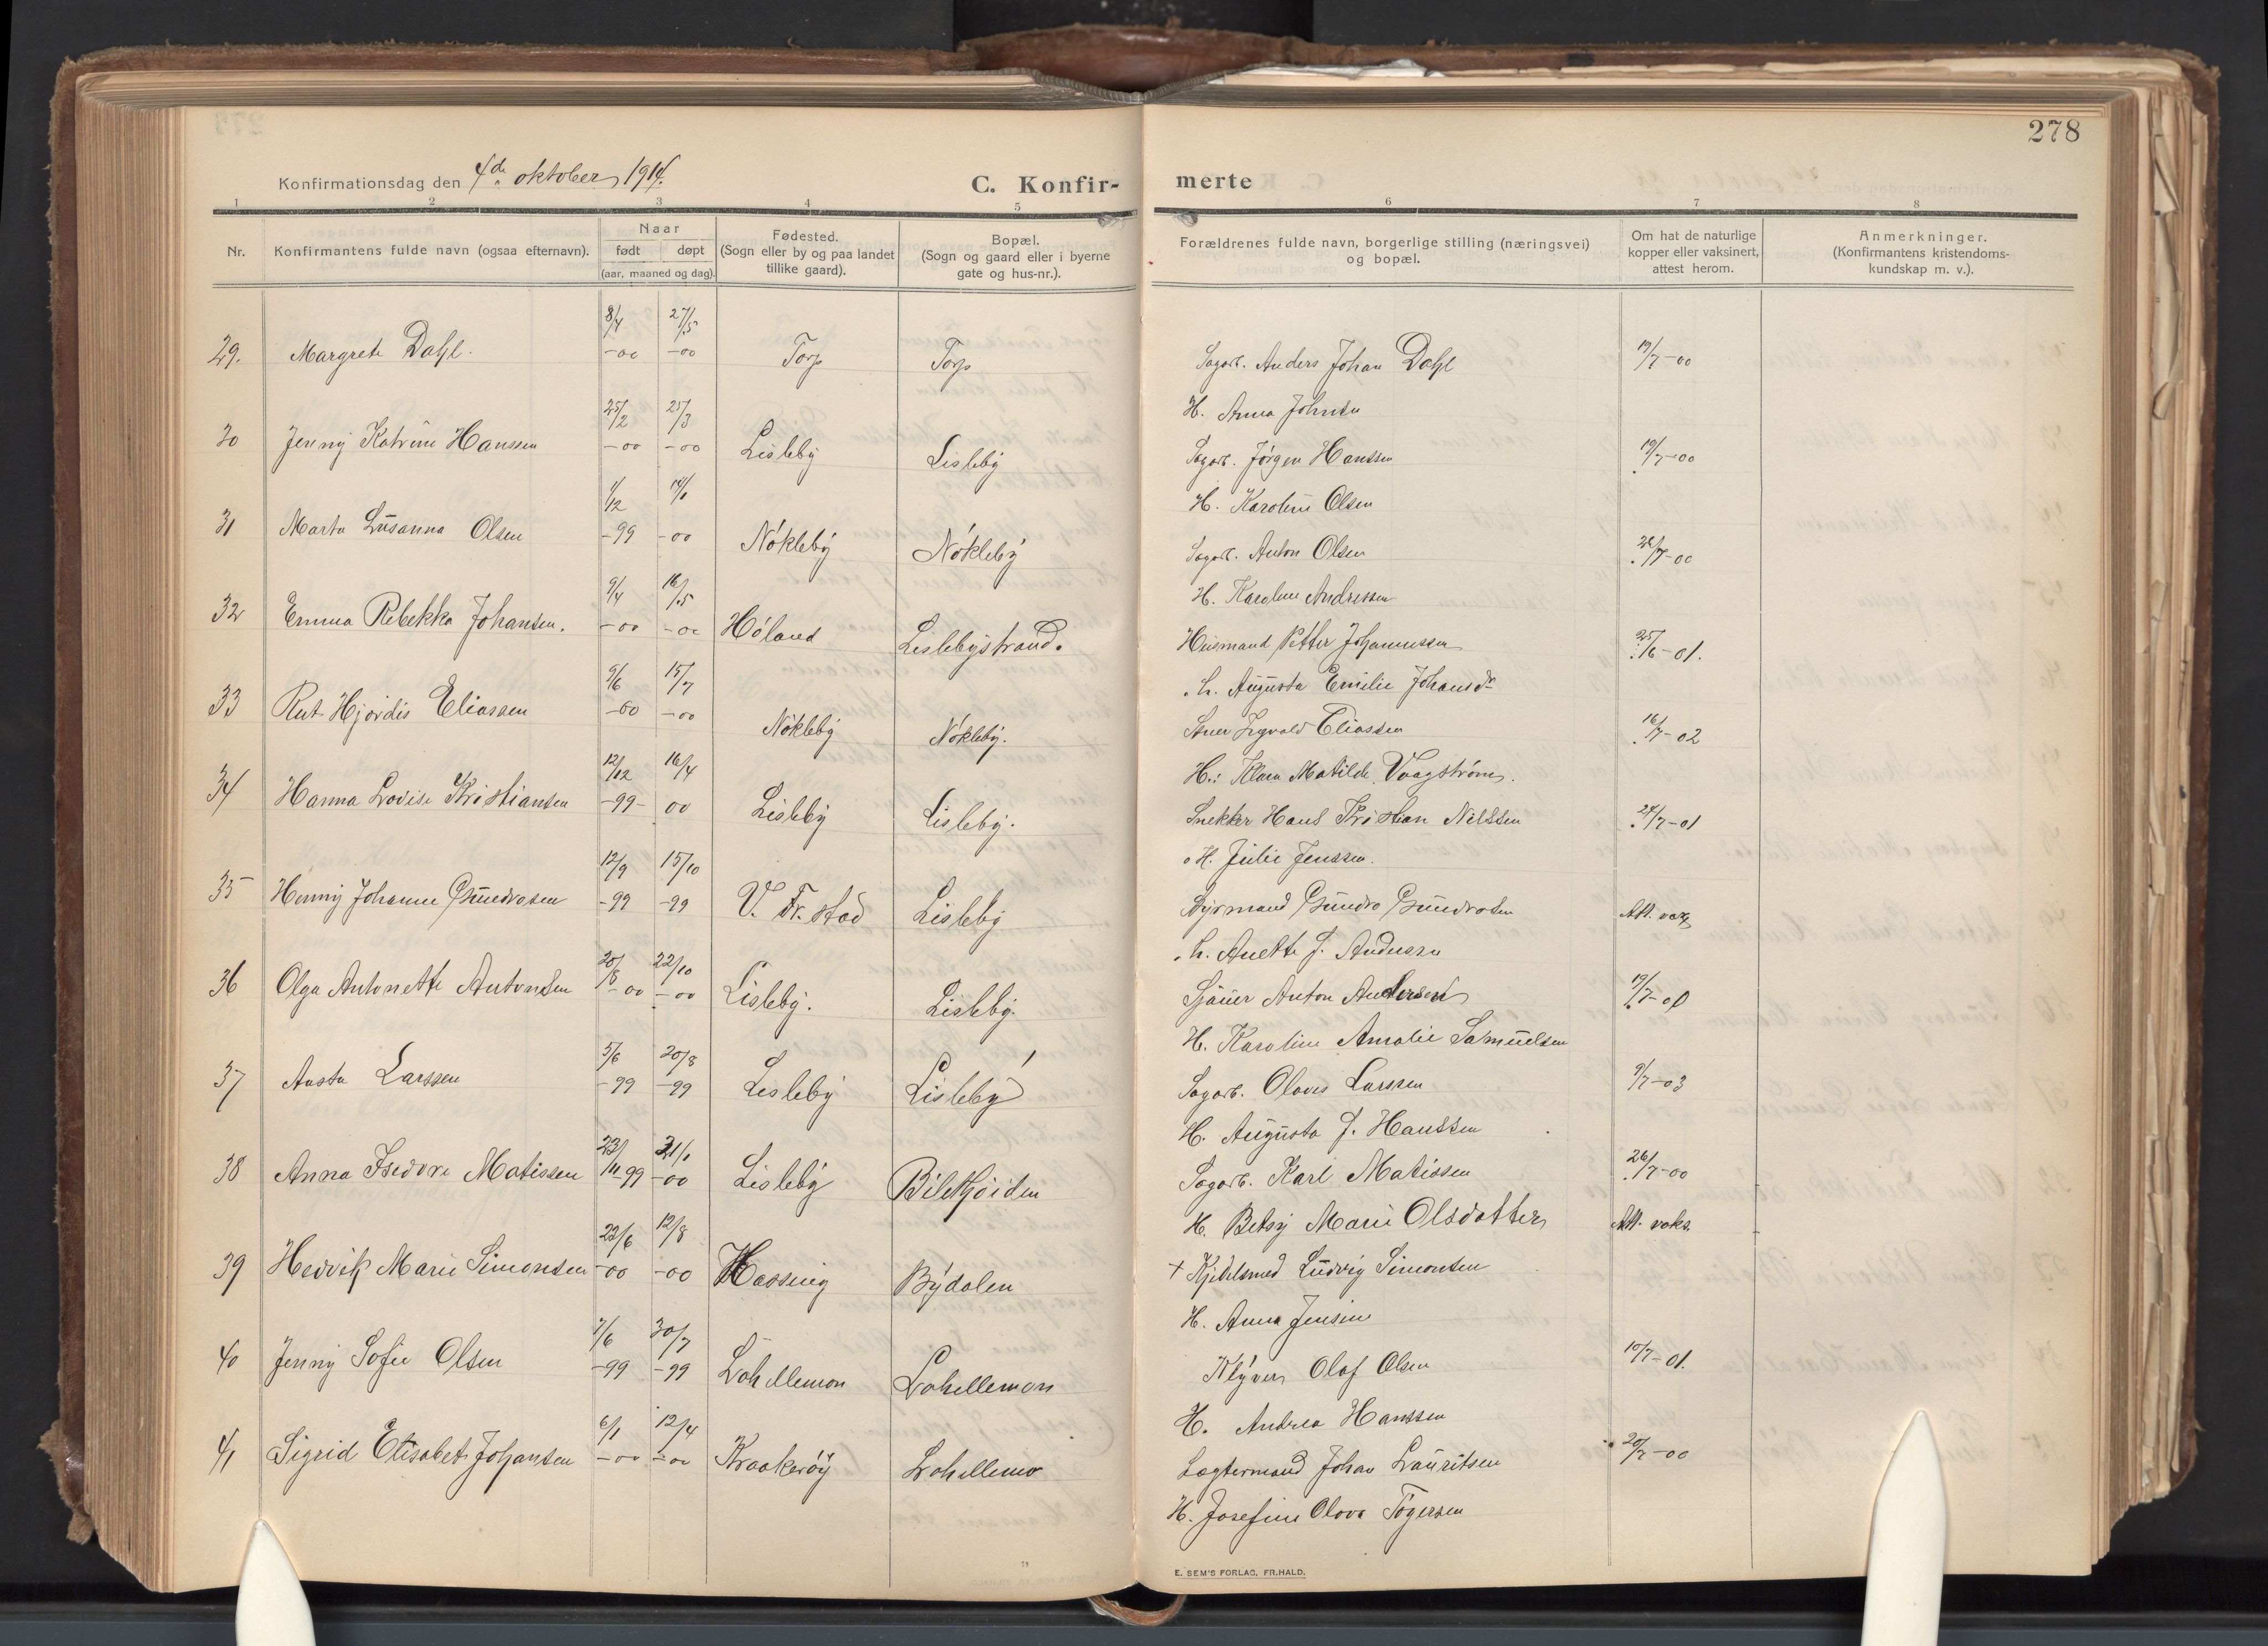 278
Konfirmationsdag den 4de oktober 1914.
C. Konfir-
merte
1 2 3 4 5 6 7 8
Nr.
Konfirmantens fulde navn (ogsaa efternavn).
Naar
født døpt
(aar, maaned og dag).
Fødested.
(Sogn eller by og paa landet
tillike gaard).
Bopæl.
(Sogn og gaard eller i byerne
gate og hus-nr.).
Forældrenes fulde navn, borgerlige stilling (næringsvei)
og bopæl.
Om hat de naturlige
kopper eller vaksinert,
attest herom.
Anmerkninger.
(Konfirmantens kristendoms-
kundskap m. v.).
8/4 27/5
29. Margrete Dahl. -00 -00 Torp Torp Sagarb. Anders Johan Dahl 19/7-00
H. Anna Johnsen
25/2 25/3
30 Jenny Katrine Hanssen -00 -00 Lisleby Lisleby Sagarb. Jørgen Hanssen 19/7-00
H. Karoline Olsen
1/12 14/1
31 Marta Susanna Olsen -99 -00 Nókleby Nókleby Sagarb. Anton Olsen /7-00
H. Karoline Andressen
9/4 16/5
32 Emma Rebekka Johansen. -00 -00 Høland Lislebystrand. Husmand Petter Johannessen 25/6-01.
h. Augusta Emilie Johansdr
9/6 15/7
33 Rut Hjørdis Eliassen -00 -00 Nókleby Nókleby. Stuer Ingvald Eliassen 16/7-02
H.: Klara Matilde Vaagstrøm.
12/12 16/4
34 Hanna Lovise Kristiansen -99- 00 Lisleby Lisleby. Snekker Hans Kristian Nilssen 24/7-01
H. Julie Jenssen.
12/9 15/10
35 Henny Johanne Gundrosen -99 -99 V. Fr. stad Lisleby Byrmand Gundro Gundrosen Att. vax
h. Anette J. Andersen
20/8 22/10
36 Olga Antonette Antonsen -00 -00 Lisleby. Lisleby. Sjauer Anton Andersen 19/7-01
H. Karoline Amalie Samuelsen
5/6 20/8
37 Aasta Larssen -99 -99 Lisleby Lisleby Sagarb. Olaves Larssen 9/7-03
H. Augusta J. Hanssen
23/11 21/1
38 Anna Isidore Matissen -99 -00 Lisleby Bilitkjóiden Sagarb. Karl Matissen 26/7-00
H. Betsy Marie Olsdatter Att. vaks.
22/6 12/8
39 Hedvik Marie Simonsen -00 -00 Hassing Býdalen + Kjedelsmed Ludvig Simonsen
H. Anna Jensine
7/6 30/7
40 Jenny Sofie Olsen -99 -99 Lahellemon Lahellemon Kløver Olaf Olsen 10/7-01.
H. Andrea Hanssen
6/1 12/4
41 Sigrid Elisabet Johansen -00 -00 Kraakerøy Lahellemo Lægtermand Johan Lauritsen 20/7-00
H. Josefine Olava Tógersen
E. SEM'S FORLAG, FR.HALD.